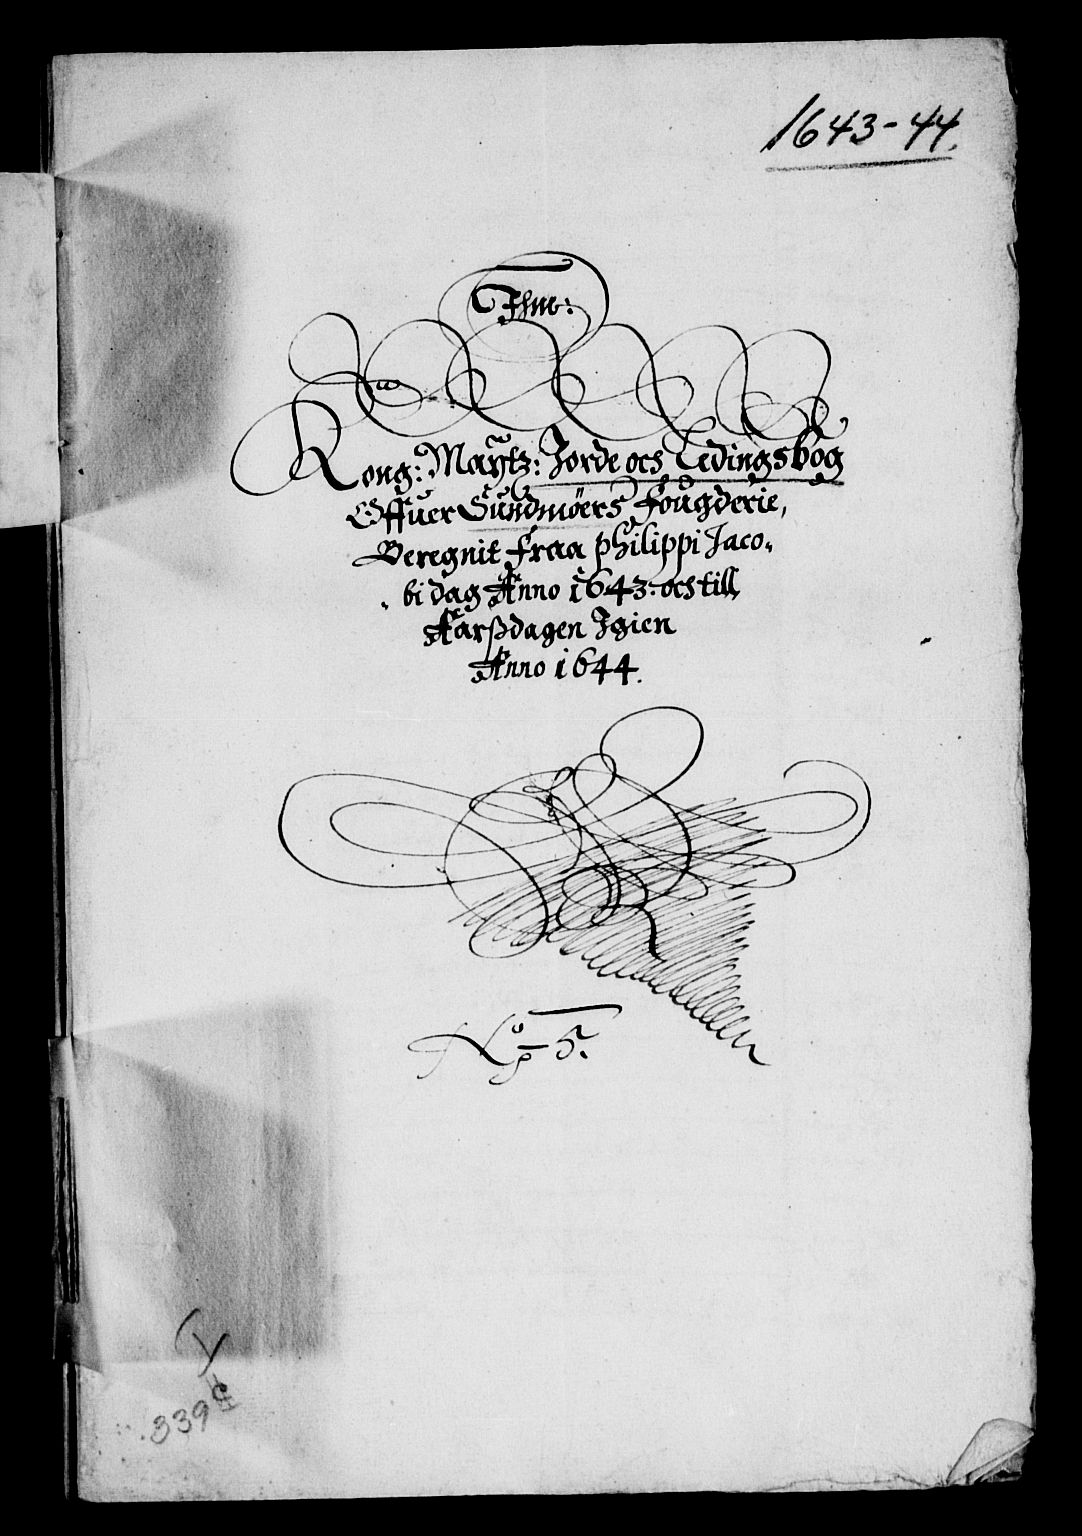 1643-44.
Kong: Maÿtz: Jorde och Ledingsbog
Offuer Sundmöers Fougderie,
Beregnit fraa philippi Jaco-
bi dag Anno 1643. och till
Aarsdagen Igien
Anno 1644.
No 5.
339